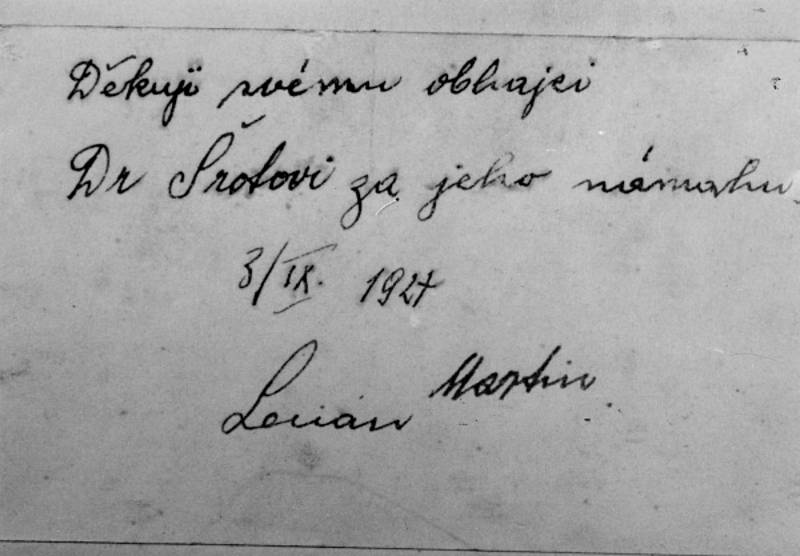 Děkuji svému obhajci
Dr Šrotovi za jeho námahu.
3/IX. 1927
Lecián Martin